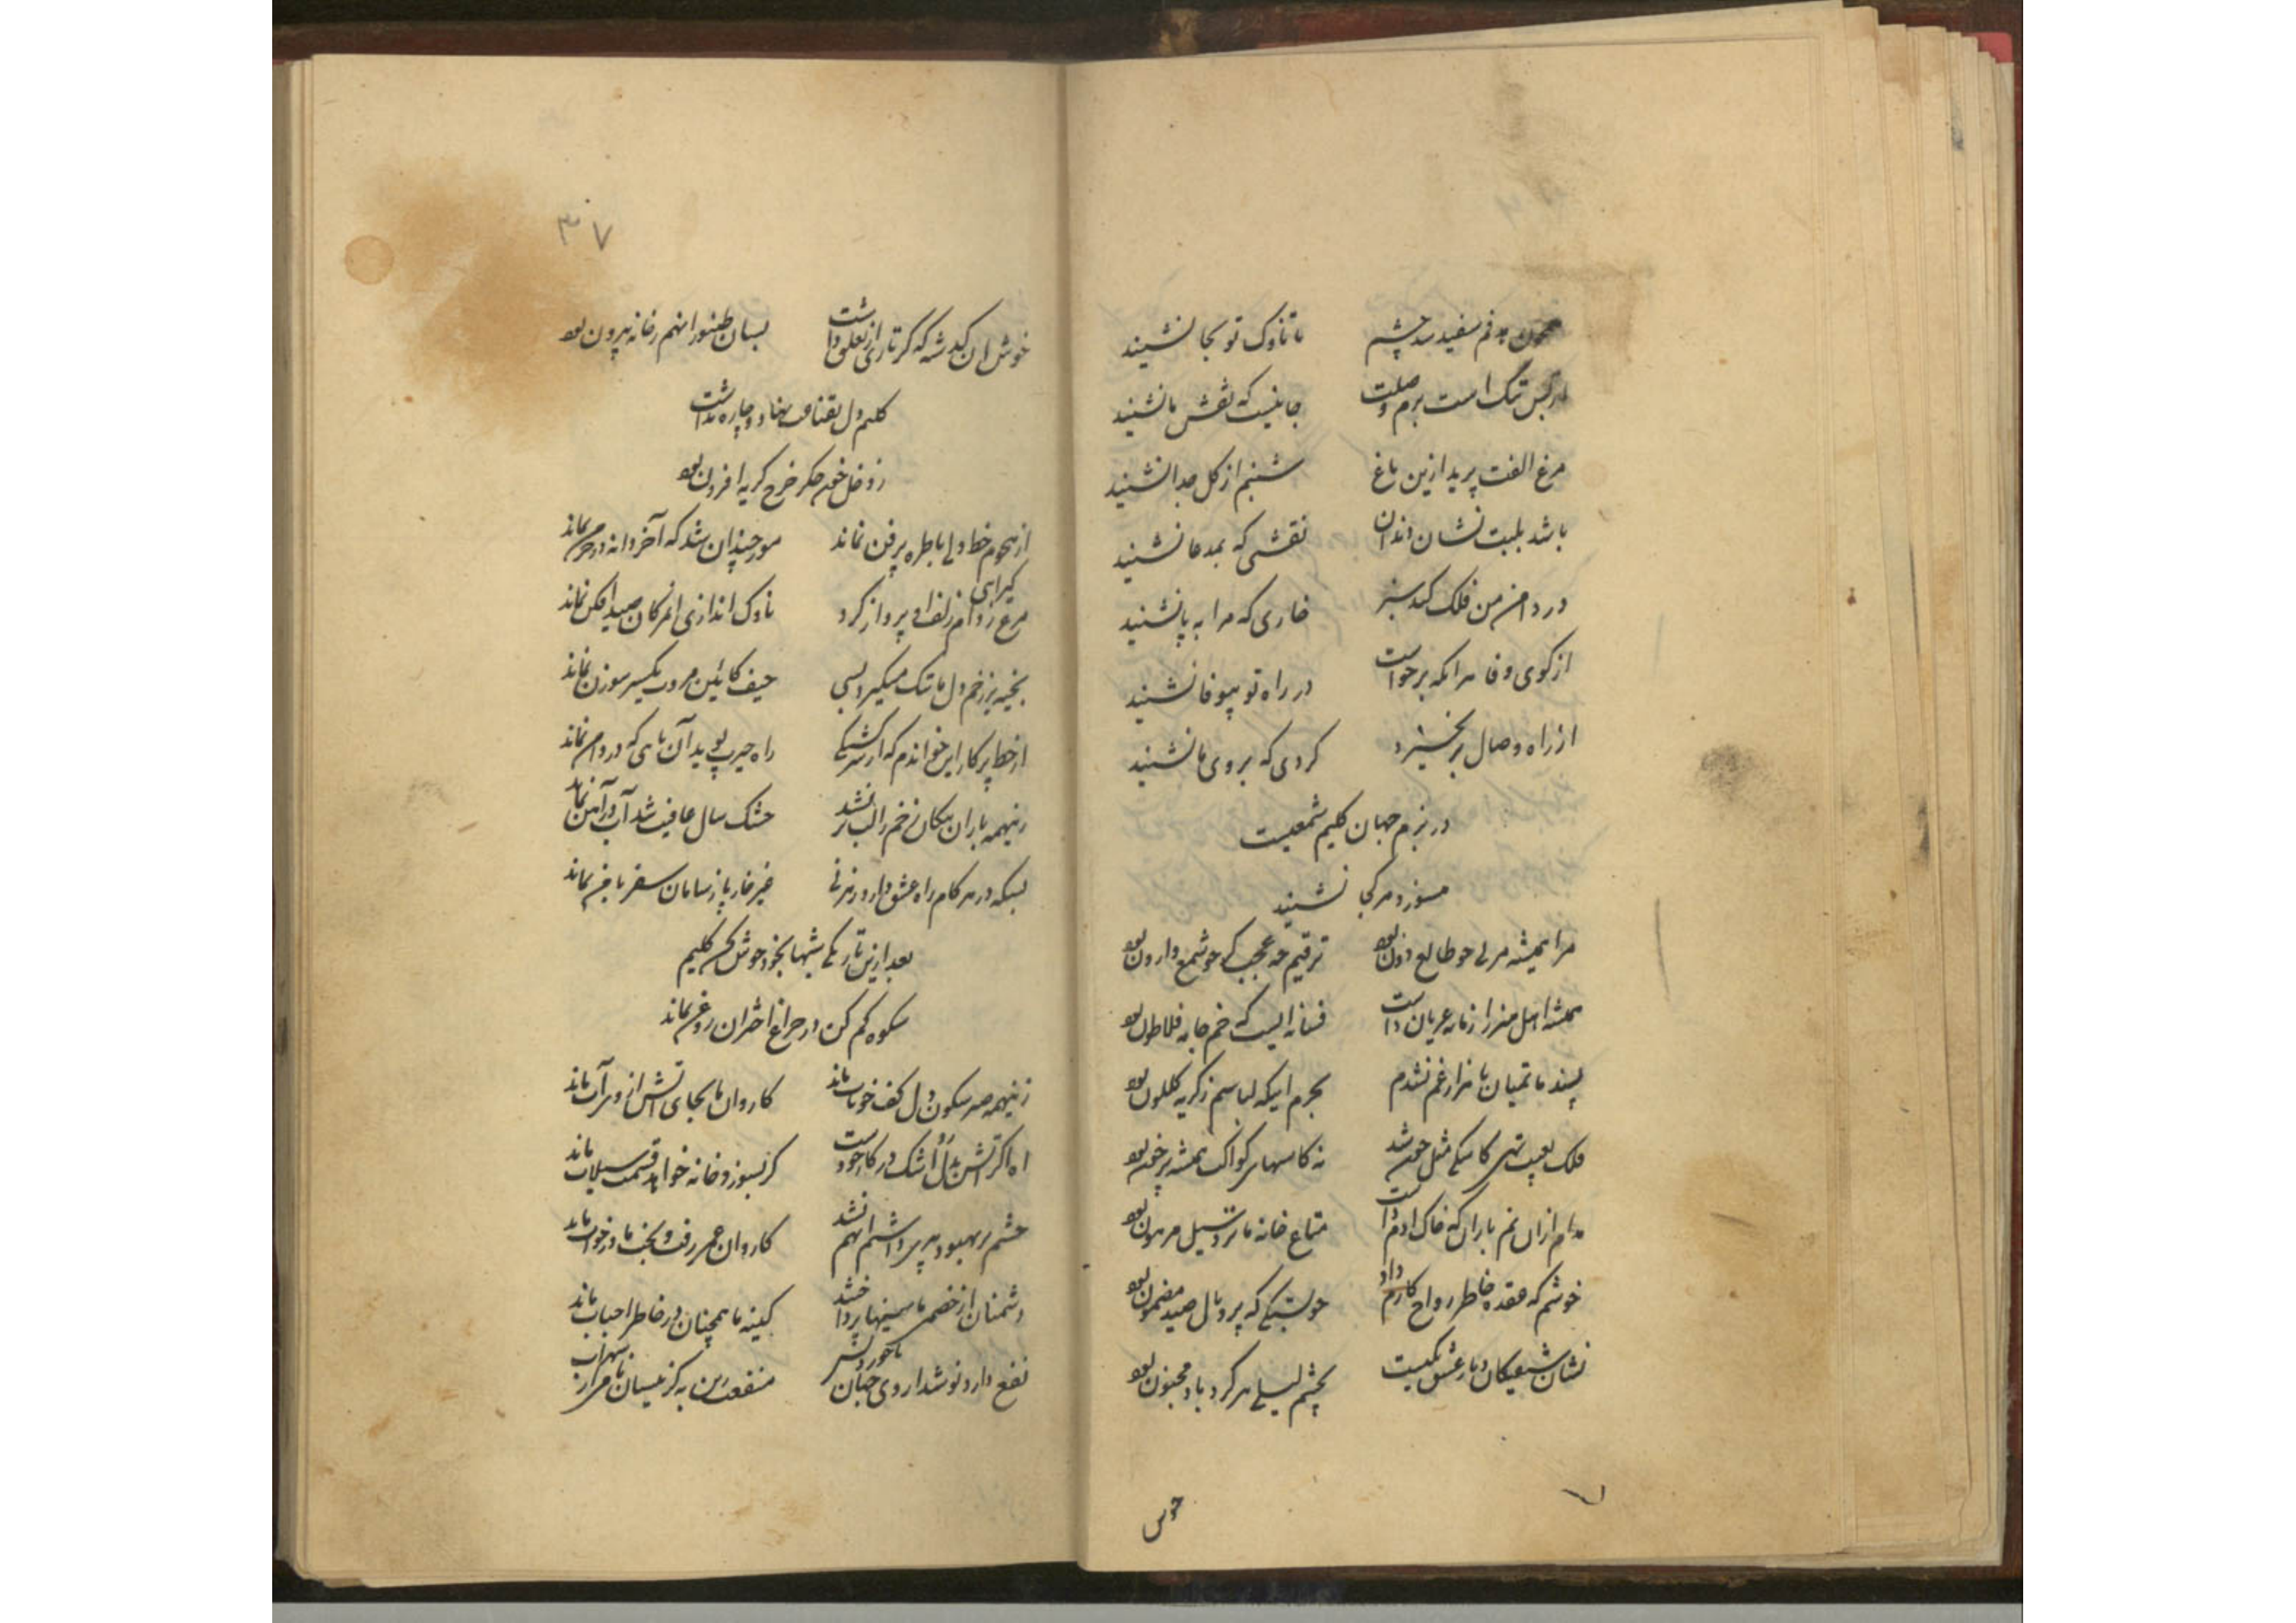 همچون هدفم سفید شد چشم تا ناوک تو بجا نشیند
از بس تنگ است بزم وصلت جا نیست که نقش ما نشیند
مرغ الفت پرید ازین باغ شبنم از گل جدا نشیند
باشد بلبت نشان دندان نقشی که بمدعا نشیند
در دامن من فلک کند سبز خاری که مرا به پا نشیند
از کوی وفا هر انکه برخواست در راه تو بیوفا نشیند
از راه وصال بر نخیزد گردی که بروی ما نشیند
در بزم جهان کلیم شمعیست
میسوزد هر کجا نشیند
مرا همیشه مربی چو طالع دون بود ترقیم چه عجب گر چو شمع وارون بود
همیشه اهل هنر را زمانه عریان داشت فسانه ایست که خم جامه فلاطون بود
پسند ماتمیان با هزار غم نشدم بجرم اینکه لباسم ز گریه گلگون بود
فلک بعیب تهی کاسکی مثل چون شد نه کاسهای کواکب همیشه پر خون بود
مدام از ان نم باران که خاک ادم داشت متاع خانه ما نزد سیل مرهون بود
خوشم که عقده خاطر رواج کارم داد چو بستگی که پر و بال صید مضمون بود
نشان شیفتگان دیار عشق یکیست بچشم لیلی هر گردباد مجنون بود
خوش
۳۰۷
خوش ان کدشه که گر تاری از تعلق داشت بسان طنبور انهم ز خانه بیرون بود
کلیم دل بقناعت نهاد و چاره نداشت
ز دخل خون جگر خرج گریه افزون بود
از هجوم خط دلی با طره پر فن نماند مور چندان شد که آخر دانه در خرمن نماند
مرغ زد دام زلف او پرواز کرد گیرایی ناوک اندازی ان مژگان صید افکن نماند
بخیه بر زخم دل ما تنگ میگیرد بسی حیف کائین مروت یکسر سوزن نماند
از خط پرکار این خواندم که از سرگشتگی راه چون پوید آن پائی که در دامن نماند
زینهمه باران پیکان زخم را لب تر نشد خشک سال عافیت شد آب در آهن نماند
بسکه در هر گام راه عشق دارد رهزنی غیر خار پا ز سامان سفر با من نماند
بعد ازین تاریکی شبها بخود خوش کن کلیم
شکوه کم کن در چراغ اختران روغن نماند
زینهمه صبر و سکون در دل کف خوناب ماند کاروان ما بجای اتش از وی آب ماند
اه اگر اتش بدل زد اشک در کار خودست گر بسوزد خانه خواهد قسمت سیلاب ماند
چشم بر بهبود هر پر داشتم انهم نشد کاروان عمر رفت و بخت ما در خواب ماند
دشمنان از خصمی ما سینها پرداختند کینه ما همچنان در خاطر احباب ماند
نفع دارد نوشداروی جهان ناخوردنش منفعت بین به کز یسان تا مزار سهراب